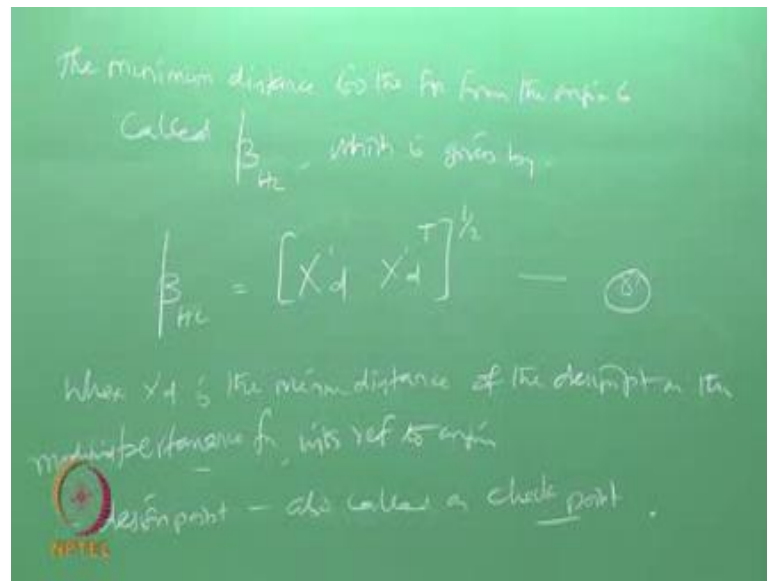 The minimum distance to the fn from the origin is
Called β_HL, which is given by.
β_HL = [X'd X'd^T]^1/2 — (8)
Where X'd is the minm distance of the design pt on the
performance fn, with ref to origin
design point - also called as check point.
NPTEL